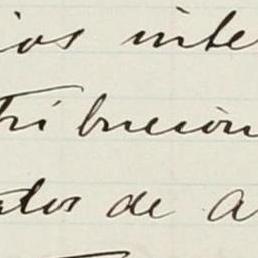 ios inte
tribución
atos de a